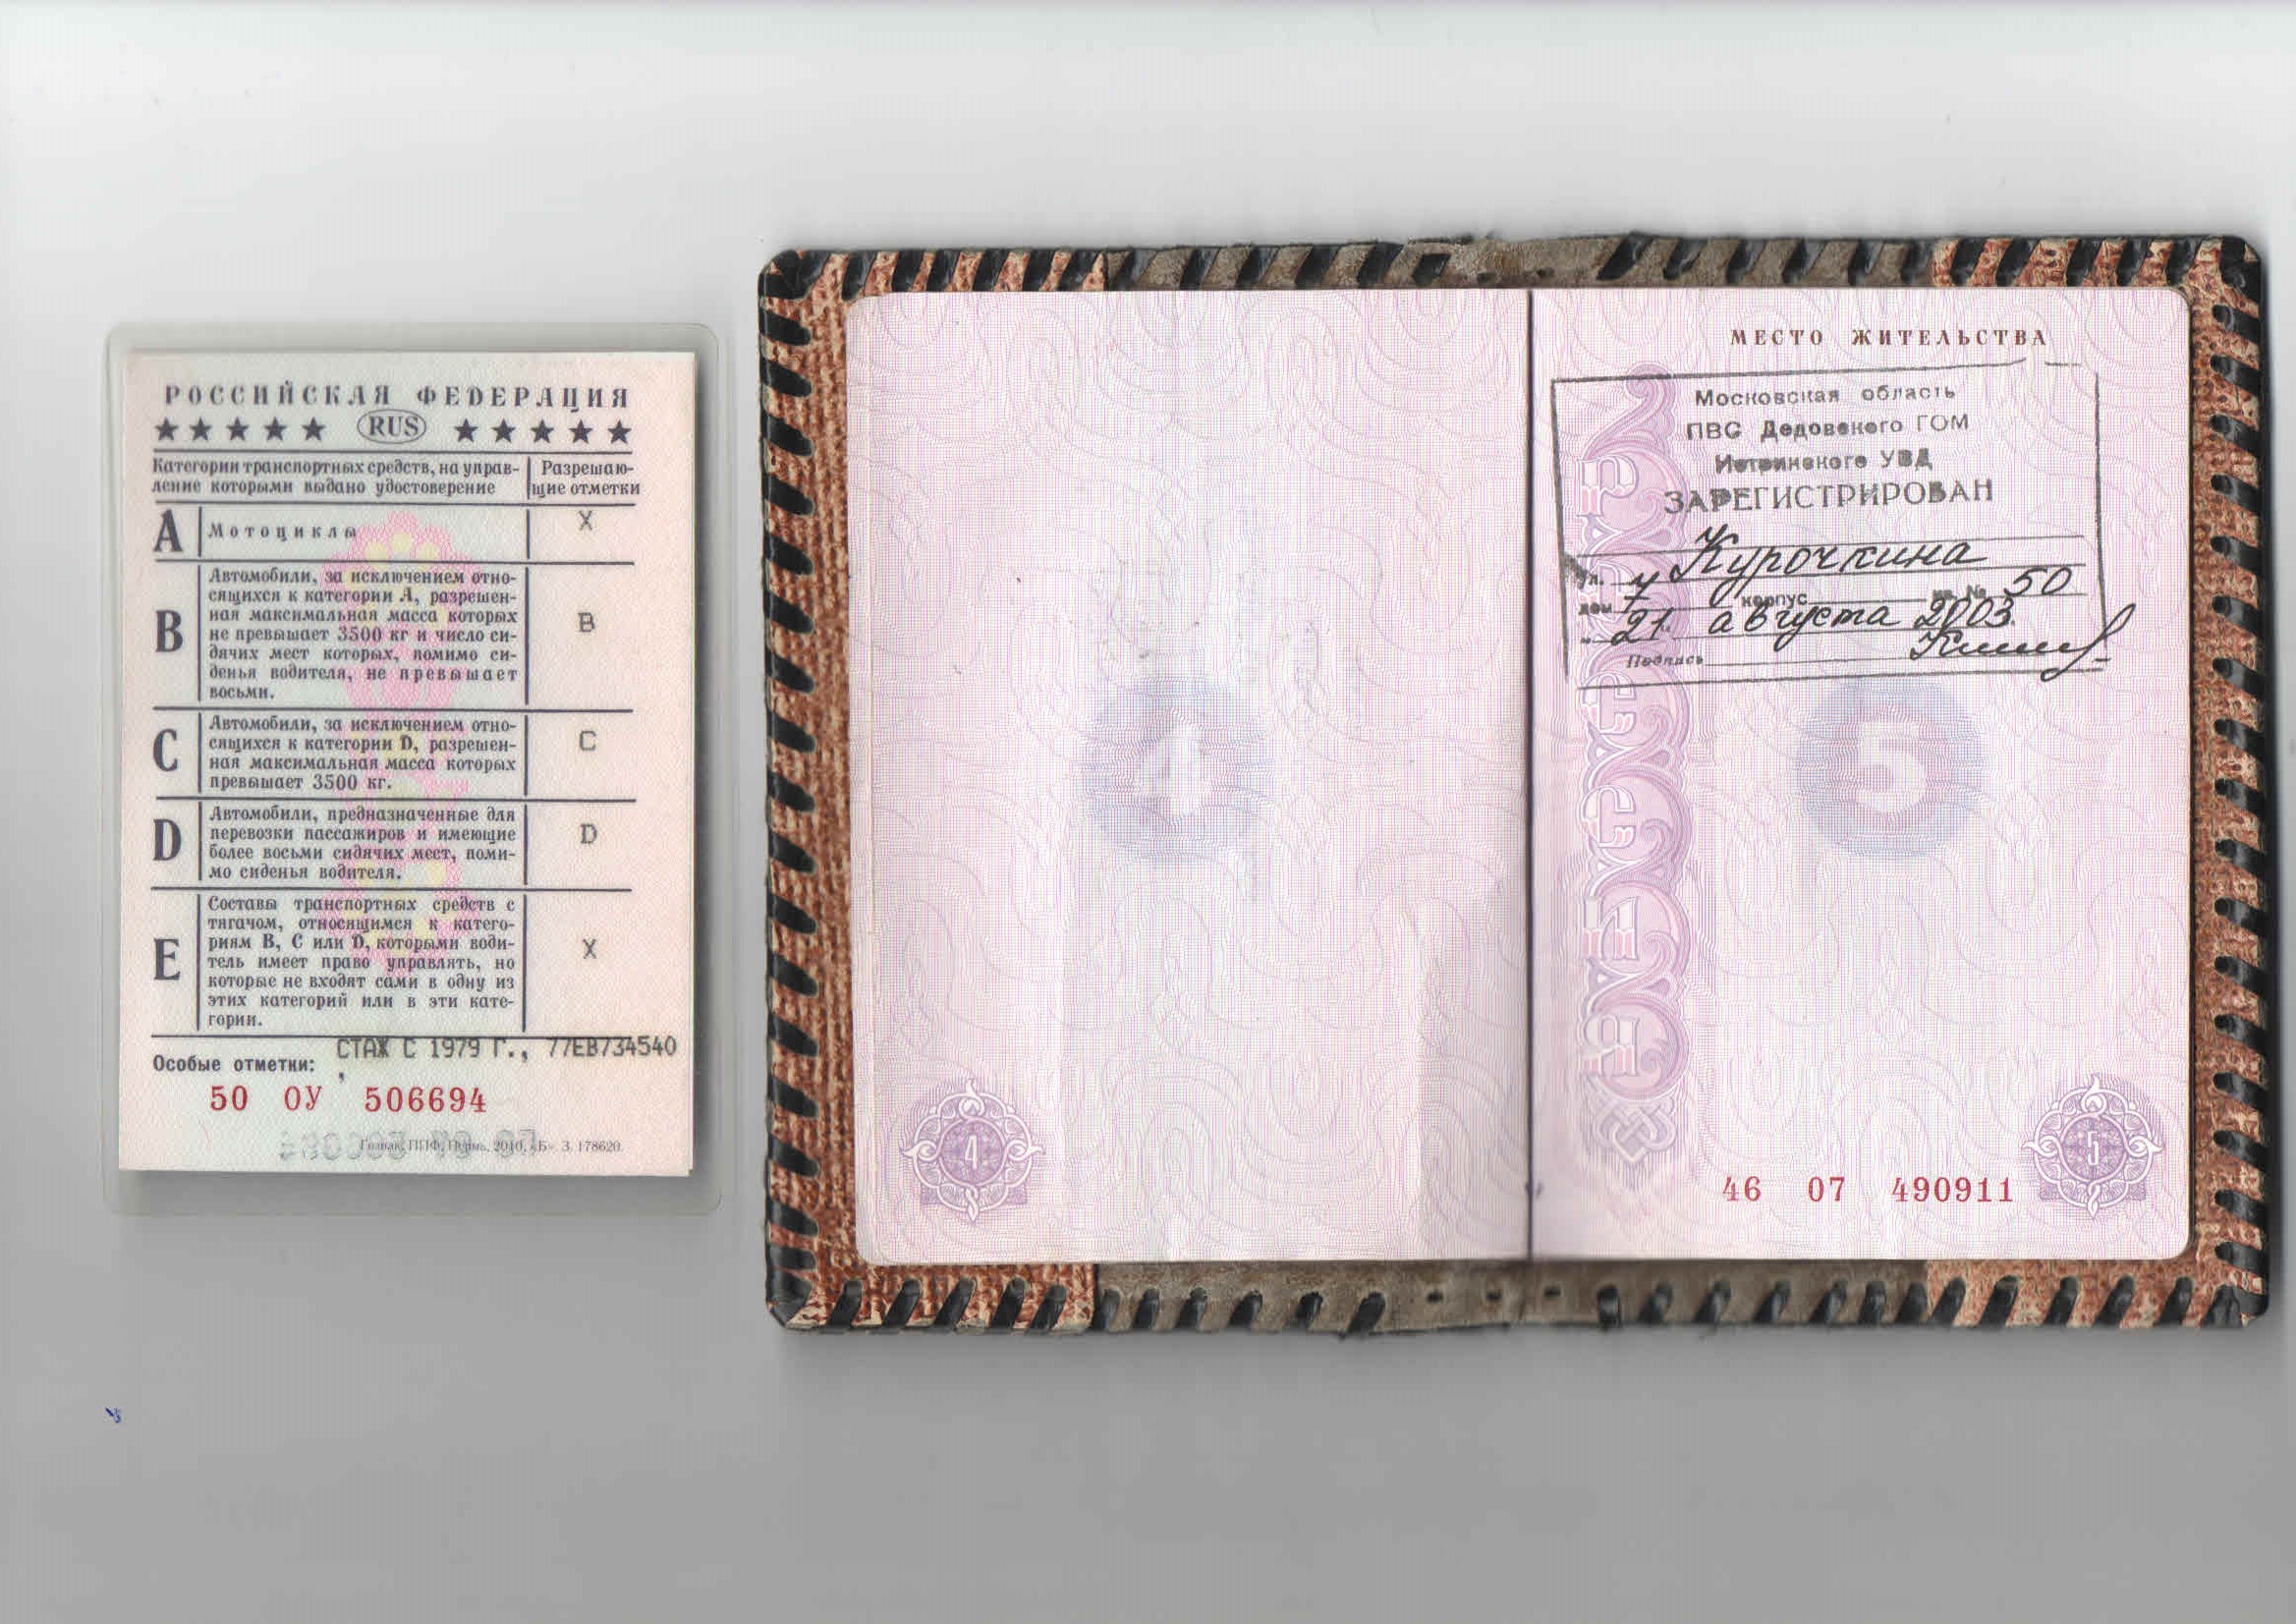 РОССИЙСКАЯ ФЕДЕРАЦИЯ
★★★★★ RUS ★★★★★
Категории транспортных средств, на управ-
ление которыми выдано удостоверение
Разрешаю-
щие отметки
A Мотоциклы X
B Автомобили, за исключением отно-
сящихся к категории А, разрешен-
ная максимальная масса которых
не превышает 3500 кг и число си-
дячих мест которых, помимо си-
денья водителя, не превышает
восьми.
B
C Автомобили, за исключением отно-
сящихся к категории D, разрешен-
ная максимальная масса которых
превышает 3500 кг.
C
D Автомобили, предназначенные для
перевозки пассажиров и имеющие
более восьми сидячих мест, поми-
мо сиденья водителя.
D
E Составы транспортных средств с
тягачом, относящимся к катего-
риям B, C или D, которыми води-
тель имеет право управлять, но
которые не входят сами в одну из
этих категорий или в эти кате-
гории.
X
Особые отметки: СТАЖ С 1979 Г., 77ЕВ734540
,
50 ОУ 506694
Гознак, ППФ, Пермь, 2010, «Б». З. 178620.
4
4
МЕСТО ЖИТЕЛЬСТВА
Московская область
ПВС Дедовского ГОМ
Истринского УВД
ЗАРЕГИСТРИРОВАН
ул. Курочкина
дом 7 корпус кв. № 50
21. августа 2003.
Подпись
РОССИЯ
5
46 07 490911
5